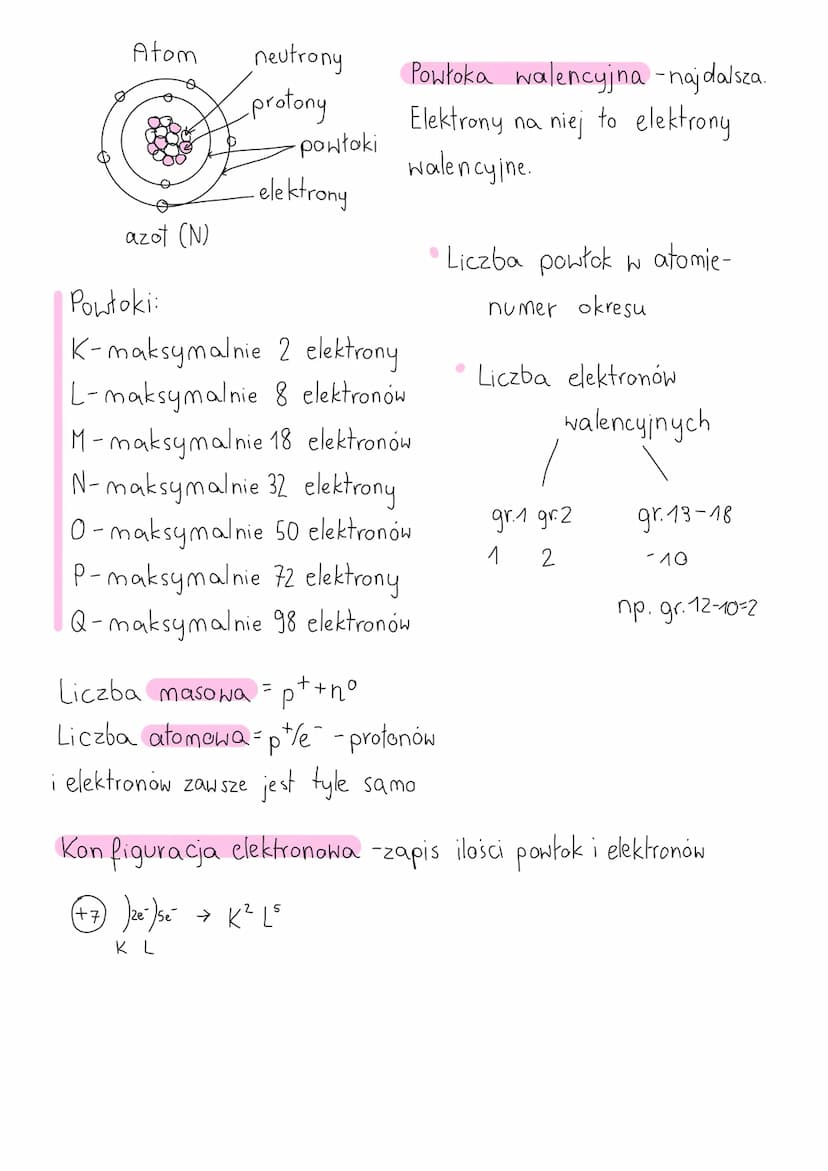 Atom
neutrony
protony
powłoki
elektrony
azot (N)
Powłoka walencyjna - najdalsza.
Elektrony na niej to elektrony
walencyjne.
• Liczba powłok w atomie-
numer okresu
Powłoki:
K - maksymalnie 2 elektrony
L - maksymalnie 8 elektronów
M - maksymalnie 18 elektronów
N - maksymalnie 32 elektrony
O - maksymalnie 50 elektronów
P - maksymalnie 72 elektrony
Q - maksymalnie 98 elektronów
• Liczba elektronów
walencyjnych
gr.1 gr.2
1 2
gr.13-18
-10
np. gr.12-10=2
Liczba masowa = p⁺+n⁰
Liczba atomowa = p⁺/e⁻ - protonów
i elektronów zawsze jest tyle samo
Konfiguracja elektronowa - zapis ilości powłok i elektronów
+7 )2e⁻)5e⁻ → K² L⁵
K L